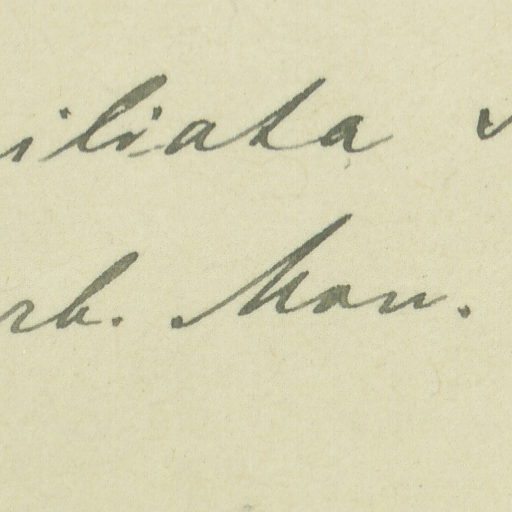 iliata
rb. Mon.